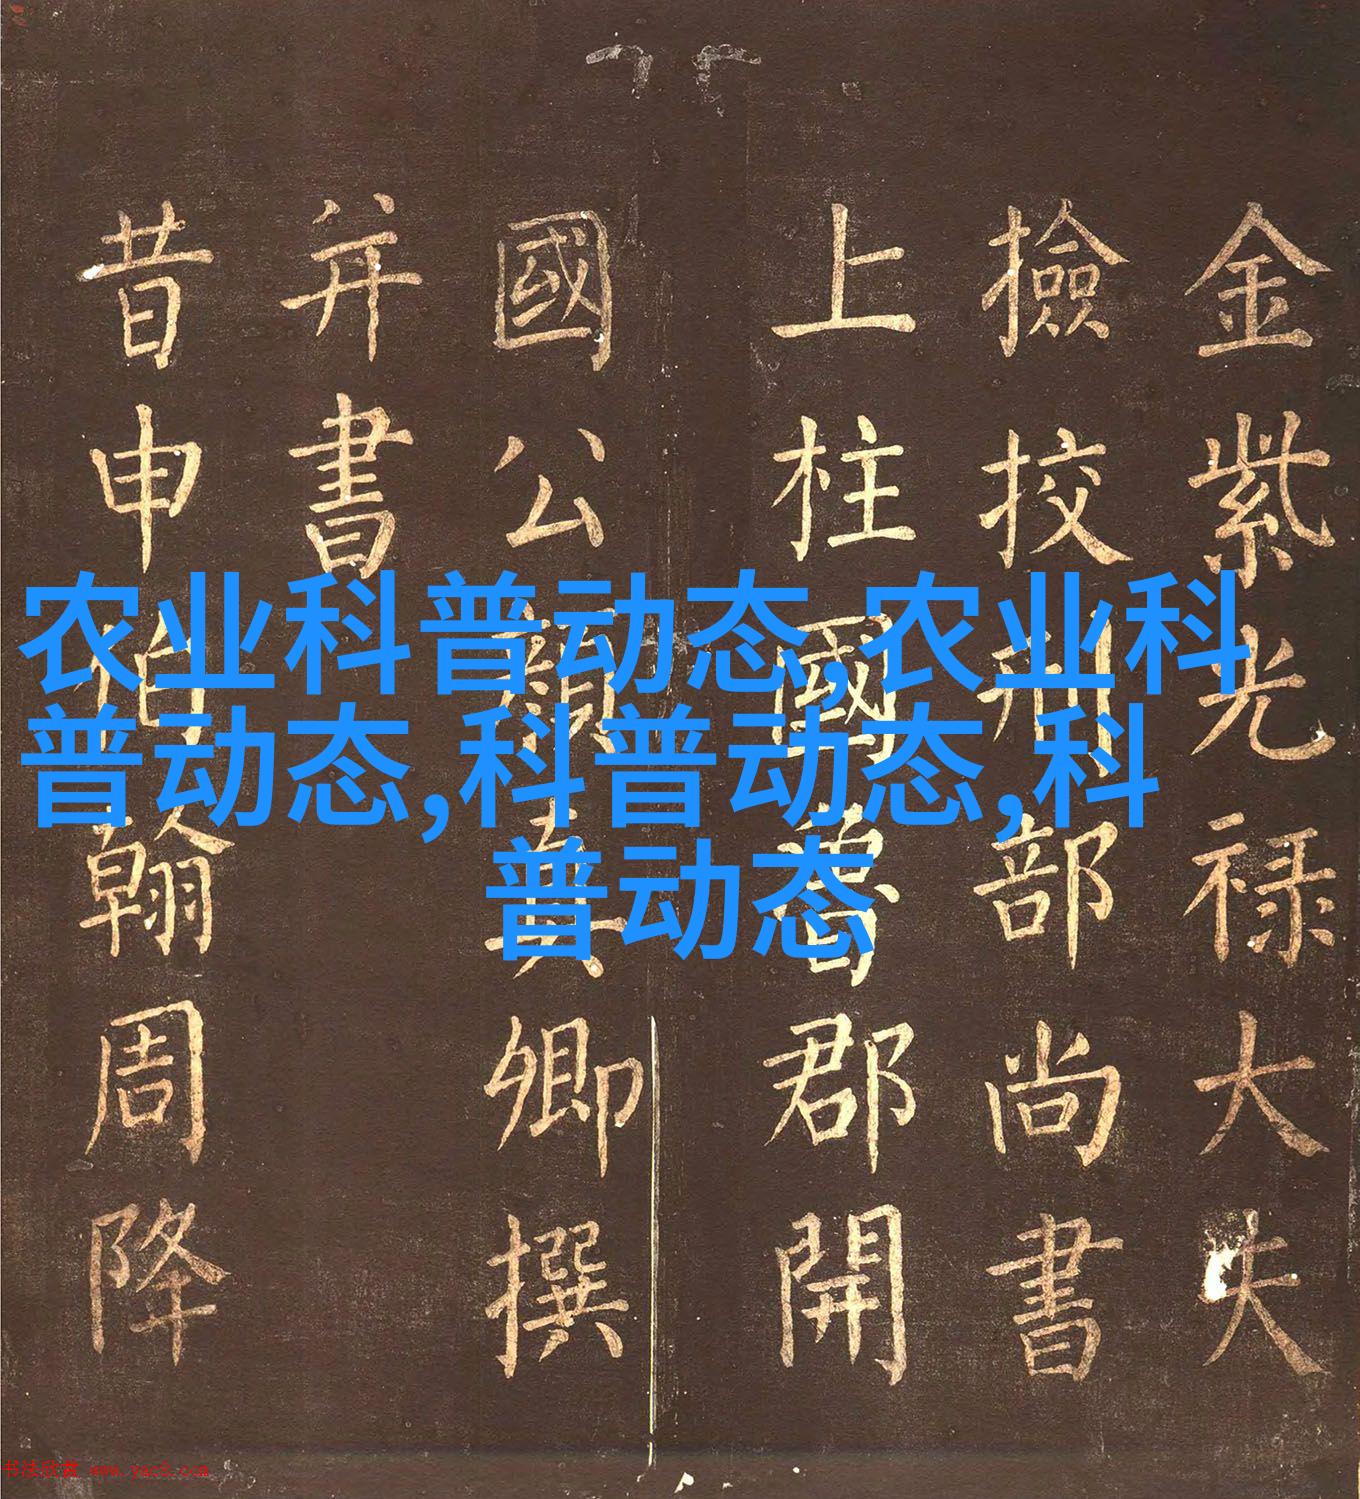 金紫光禄大夫
撿挍刑部尚書
上柱國魯郡開
國公顏真卿撰
并書
昔申伯翰周降
农业科普动态,农业科
普动态,科普动态,科
普动态
书法欣赏 www.yac8.com